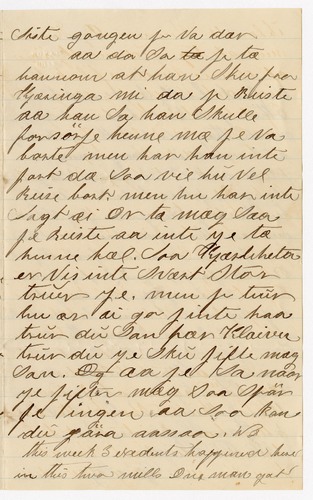 Siste gongen je va dær
aa da Sa je tæ
hannom at han Sku faa
Kjæringa mi da je Reiste
aa han Sa han Skulle
forsörje henne mæ je va
borte men har han inte
fort dæ Saa vil hu vel
Reise bort. men hu har inte
Sagt æi Or tæ mæg Saa
je Reiste aa inte je tæ
henne hæl. Saa Kjærleheten
er vis inte Svært Stor
truer je. men je trur
hu ær ei go jinte haa
trur du Jan Pær Klaiven
trur du je Sku jifte mæg
San. Og aa je Sa naar
je jifter mæg Saa Spör
je ingen aa Saa kan
du gjöra aassaa. NB
this week 3 exadents happened here
in this two mills One man gat